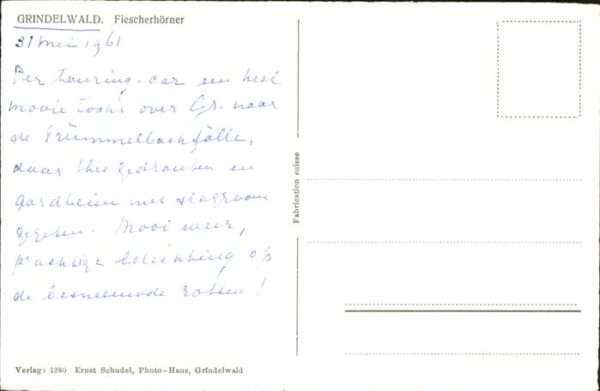 GRINDELWALD. Fiescherhörner
31 mei 1961
Per touring-car een heel
mooie tocht over Gr. naar
de Trümmelbachfälle,
daar thee gedronken en
aardbeien met slagroom
gegeten. Mooi weer,
prachtige belichting op
de besneeuwde rotsen!
Fabrication suisse
Verlag: 1260 Ernst Schudel, Photo-Haus, Grindelwald